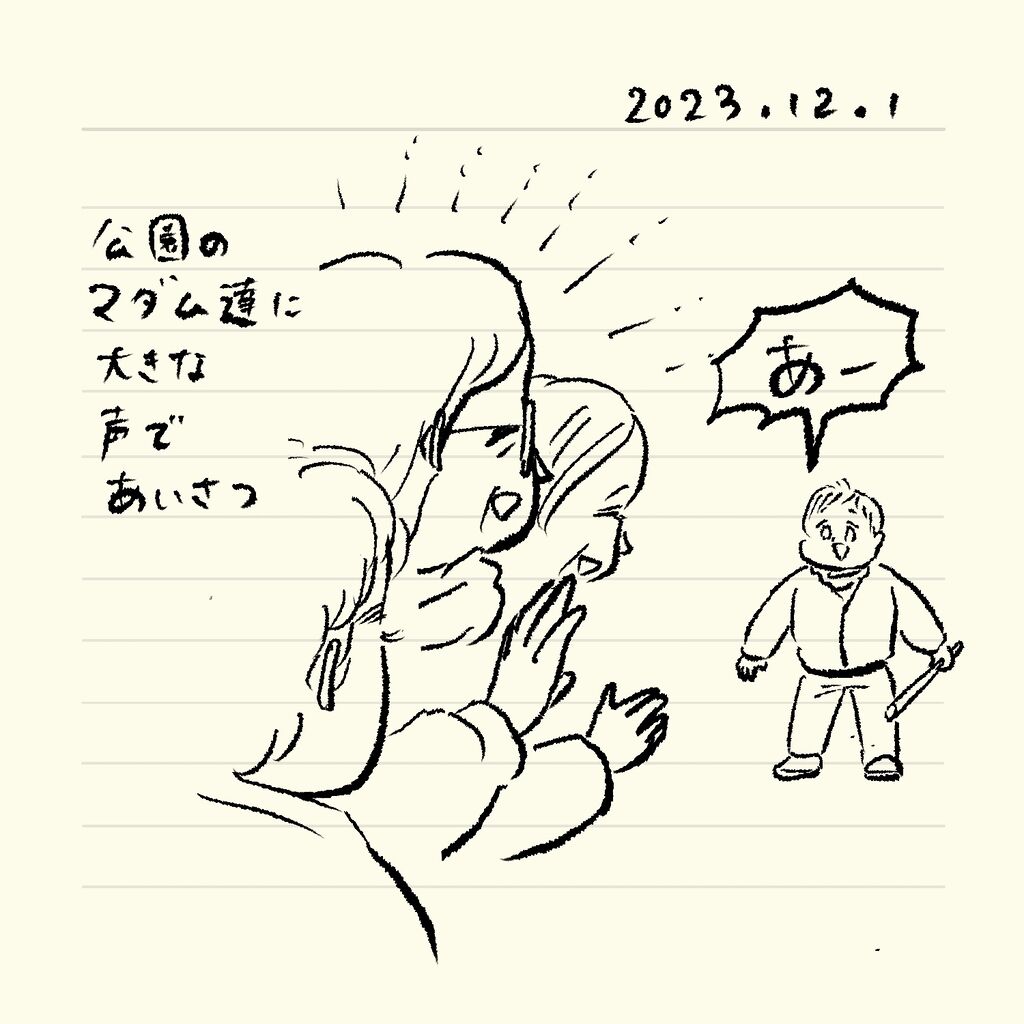 2023.12.1
公園の
マダム達に
大きな
声で
あいさつ
あー